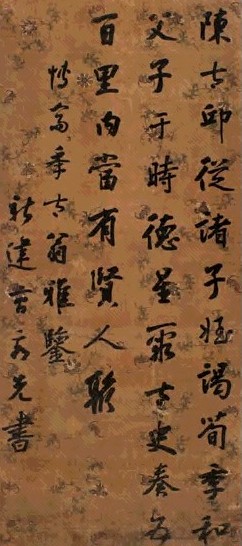 陳太邱從諸子姪謁荀季和
父子于時德星聚太史奏五
百里內當有賢人聚
博翁年太翁雅鑒
建光書